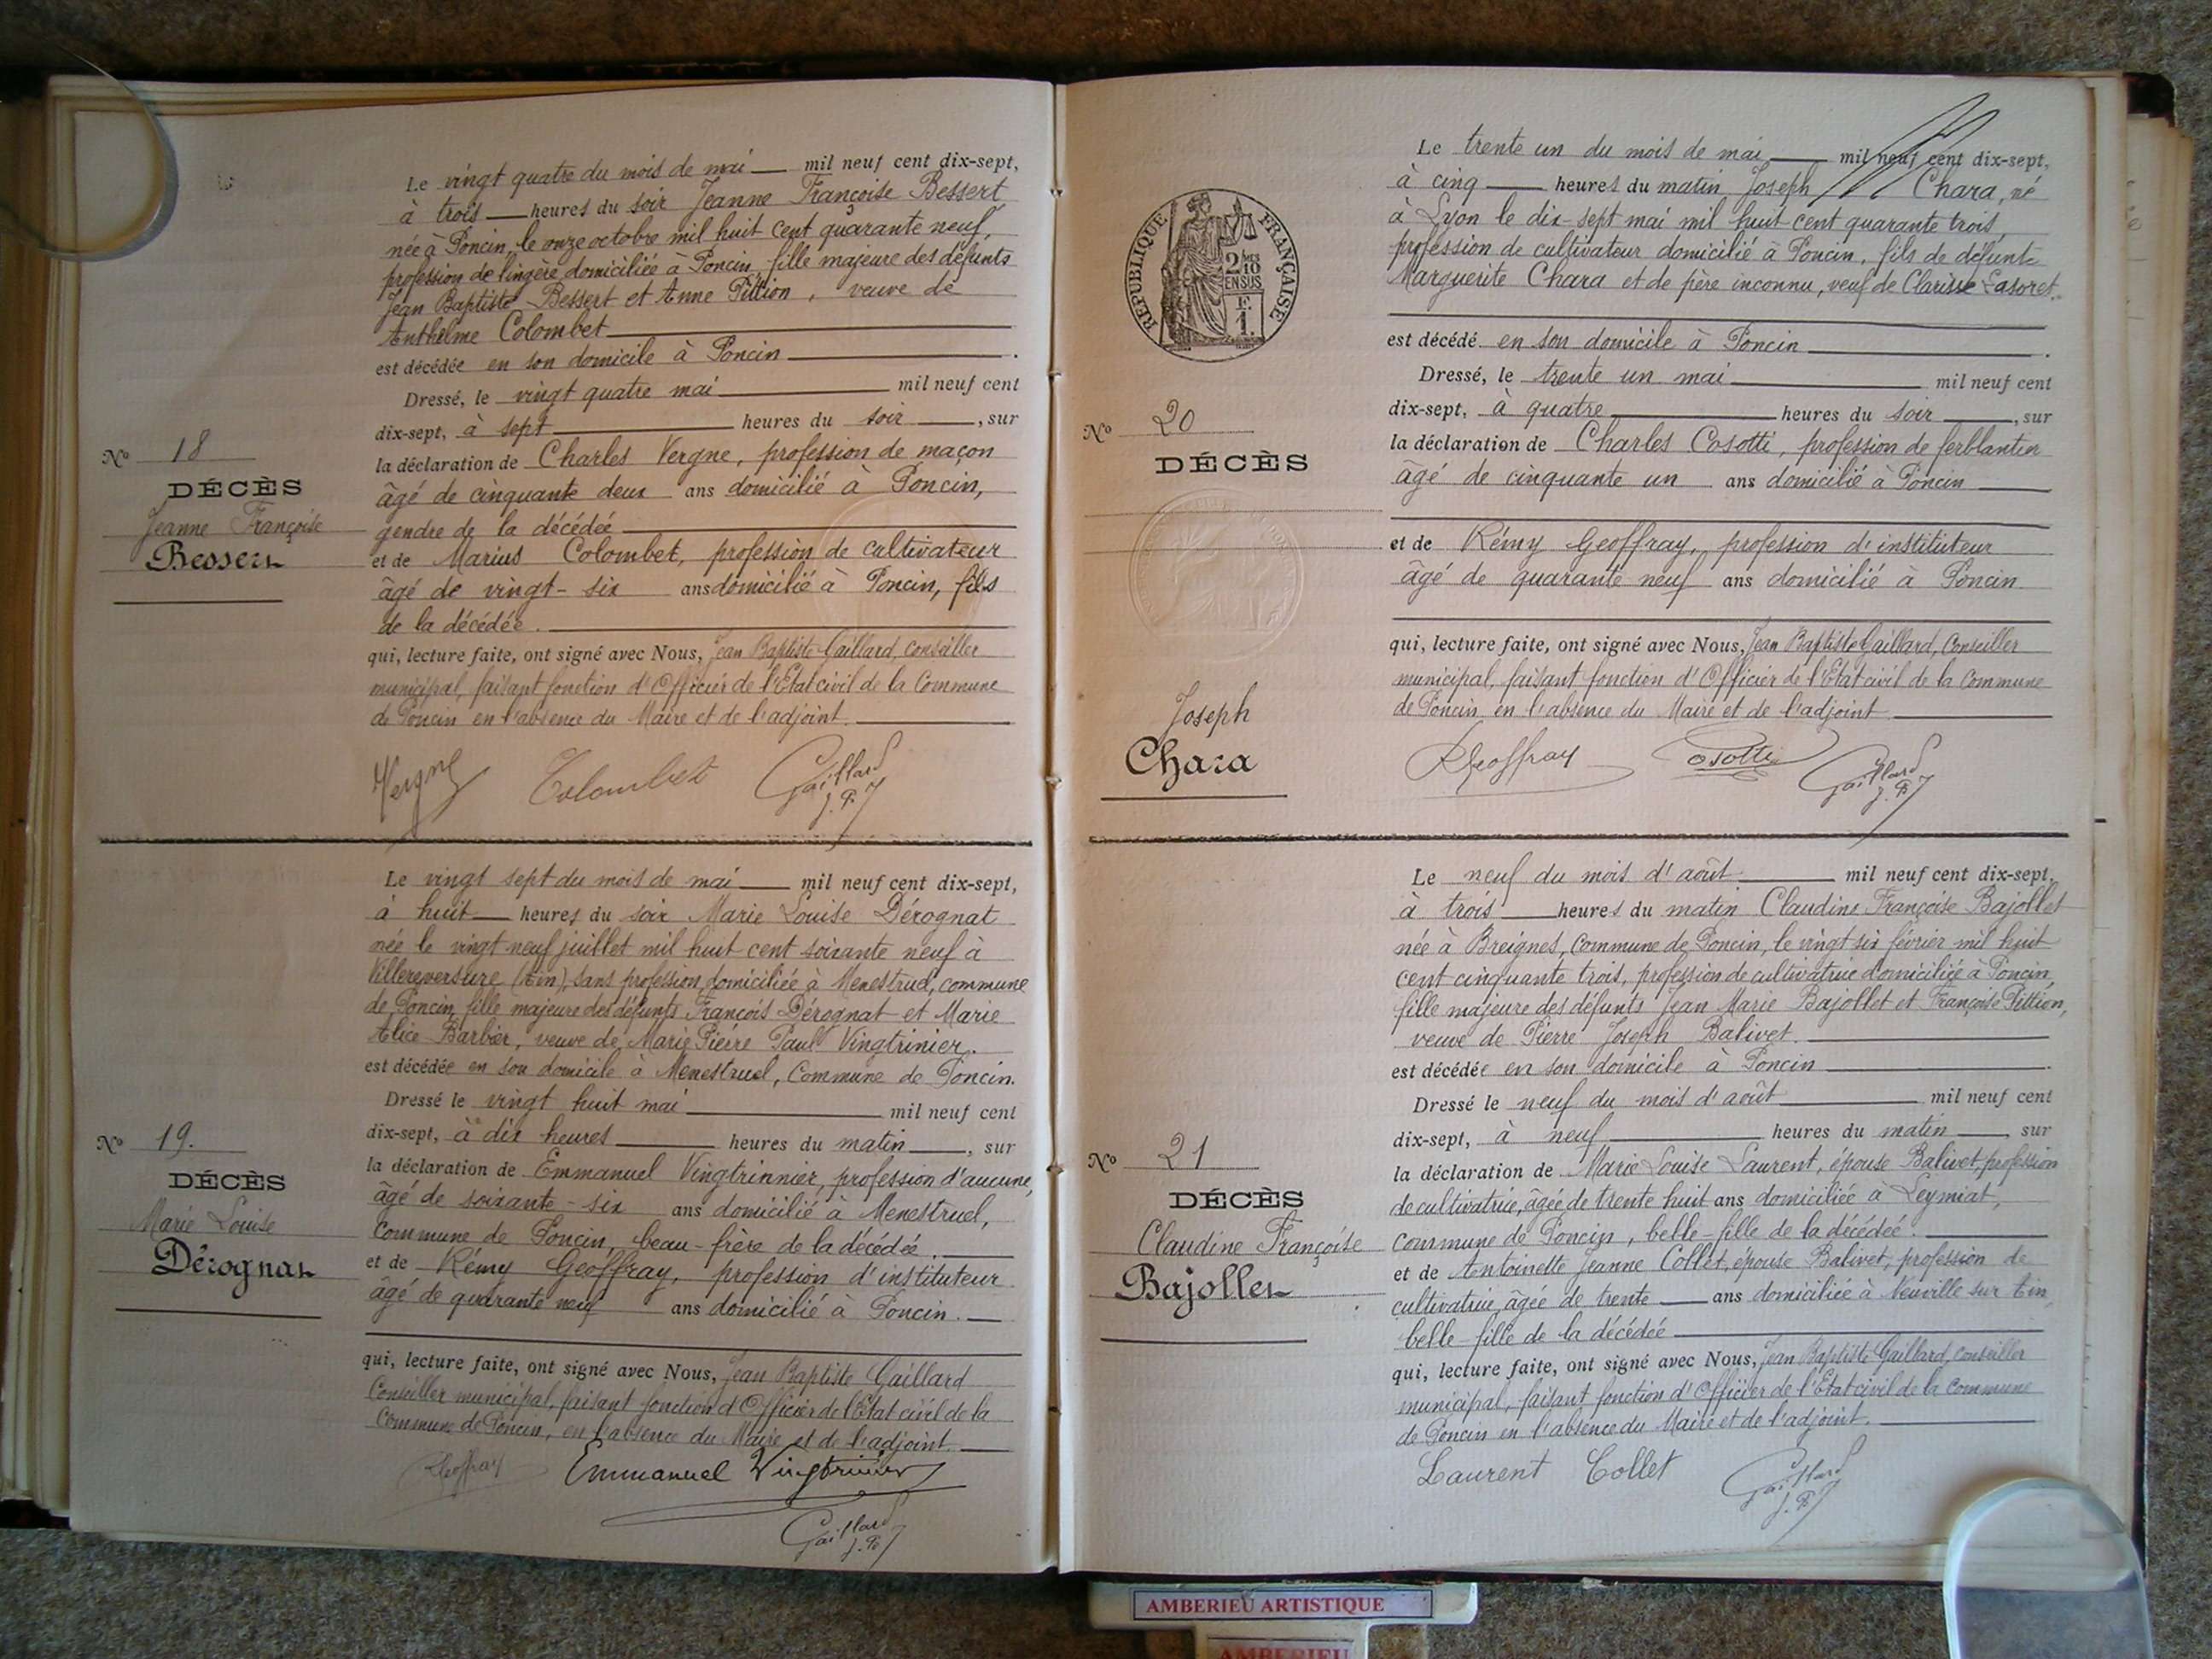 Le vingt quatre du mois de mai mil neuf cent dix-sept,
à trois heures du soir Jeanne Françoise Bessert
née à Poncin, le onze octobre mil huit cent quarante neuf,
profession de lingère domiciliée à Poncin, fille majeure des défunts
Jean Baptiste Bessert et Anne Pittion, veuve de
Anthelme Colombet
est décédée en son domicile à Poncin.
Dressé, le vingt quatre mai mil neuf cent
dix-sept, à sept heures du soir, sur
la déclaration de Charles Vergne, profession de maçon
âgé de cinquante deux ans domicilié à Poncin,
gendre de la décédée
et de Marius Colombet, profession de cultivateur
âgé de vingt-six ans domicilié à Poncin, fils
de la décédée.
qui, lecture faite, ont signé avec Nous, Jean Baptiste Gaillard, conseiller
municipal, faisant fonction d'Officier de l'Etat civil de la Commune
de Poncin en l'absence du Maire et de l'adjoint.
No 18
DÉCÈS
Jeanne Françoise
Bessert
Vergne Colombet Gaillard
J. B.
Le vingt sept du mois de mai mil neuf cent dix-sept,
à huit heures du soir Marie Louise Dérognat
née le vingt neuf juillet mil huit cent soixante neuf à
Villereversure (Ain), sans profession, domiciliée à Menestruel, commune
de Poncin, fille majeure des défunts François Dérognat et Marie
Alice Barbier, veuve de Marie Pierre Paul Vingtrinier.
est décédée en son domicile à Menestruel, Commune de Poncin.
Dressé le vingt huit mai mil neuf cent
dix-sept, à dix heures heures du matin, sur
la déclaration de Emmanuel Vingtrinnier, profession d'aucune,
âgé de soixante-six ans domicilié à Menestruel,
Commune de Poncin, beau-frère de la décédée.
et de Rémy Geoffray, profession d'instituteur
âgé de quarante neuf ans domicilié à Poncin.
qui, lecture faite, ont signé avec Nous, Jean Baptiste Gaillard
Conseiller municipal, faisant fonction d'Officier de l'Etat civil de la
Commune de Poncin, en l'absence du Maire et de l'adjoint.
No 19.
DÉCÈS
Marie Louise
Dérognat
RGeoffray Emmanuel Vingtrinier
Gaillard
J. B.
RÉPUBLIQUE FRANÇAISE
2/10
EN SUS
F.
1.
Le trente un du mois de mai mil neuf cent dix-sept,
à cinq heures du matin Joseph Chara, né
à Lyon le dix-sept mai mil huit cent quarante trois,
profession de cultivateur domicilié à Poncin, fils de défunte
Marguerite Chara et de père inconnu, veuf de Clarisse Lasoret.
est décédé en son domicile à Poncin.
Dressé, le trente un mai mil neuf cent
dix-sept, à quatre heures du soir, sur
la déclaration de Charles Cosotti, profession de ferblantier
âgé de cinquante un ans domicilié à Poncin
et de Rémy Geoffray, profession d'instituteur
âgé de quarante neuf ans domicilié à Poncin.
qui, lecture faite, ont signé avec Nous, Jean Baptiste Gaillard, Conseiller
municipal, faisant fonction d'Officier de l'Etat civil de la Commune
de Poncin en l'absence du Maire et de l'adjoint
No 20
DÉCÈS
Joseph
Chara
RGeoffray Cosotti Gaillard
J. B.
Le neuf du mois d'août mil neuf cent dix-sept,
à trois heures du matin Claudine Françoise Bajollet
née à Breignes, commune de Poncin, le vingt six février mil huit
cent cinquante trois, profession de cultivatrice domiciliée à Poncin,
fille majeure des défunts Jean Marie Bajollet et Françoise Pittion,
veuve de Pierre Joseph Balivet.
est décédée en son domicile à Poncin.
Dressé le neuf du mois d'août mil neuf cent
dix-sept, à neuf heures du matin, sur
la déclaration de Marie Louise Laurent, épouse Balivet, profession
de cultivatrice, âgée de trente huit ans domiciliée à Leymiat,
commune de Poncin, belle-fille de la décédée.
et de Antoinette Jeanne Collet, épouse Balivet, profession de
cultivatrice, âgée de trente ans domiciliée à Neuville sur Ain,
belle-fille de la décédée
qui, lecture faite, ont signé avec Nous, Jean Baptiste Gaillard, conseiller
municipal, faisant fonction d'Officier de l'Etat civil de la Commune
de Poncin en l'absence du Maire et de l'adjoint.
No 21
DÉCÈS
Claudine Françoise
Bajollet
Laurent Collet Gaillard
J. B.
AMBERIEU ARTISTIQUE
AMBERIEU